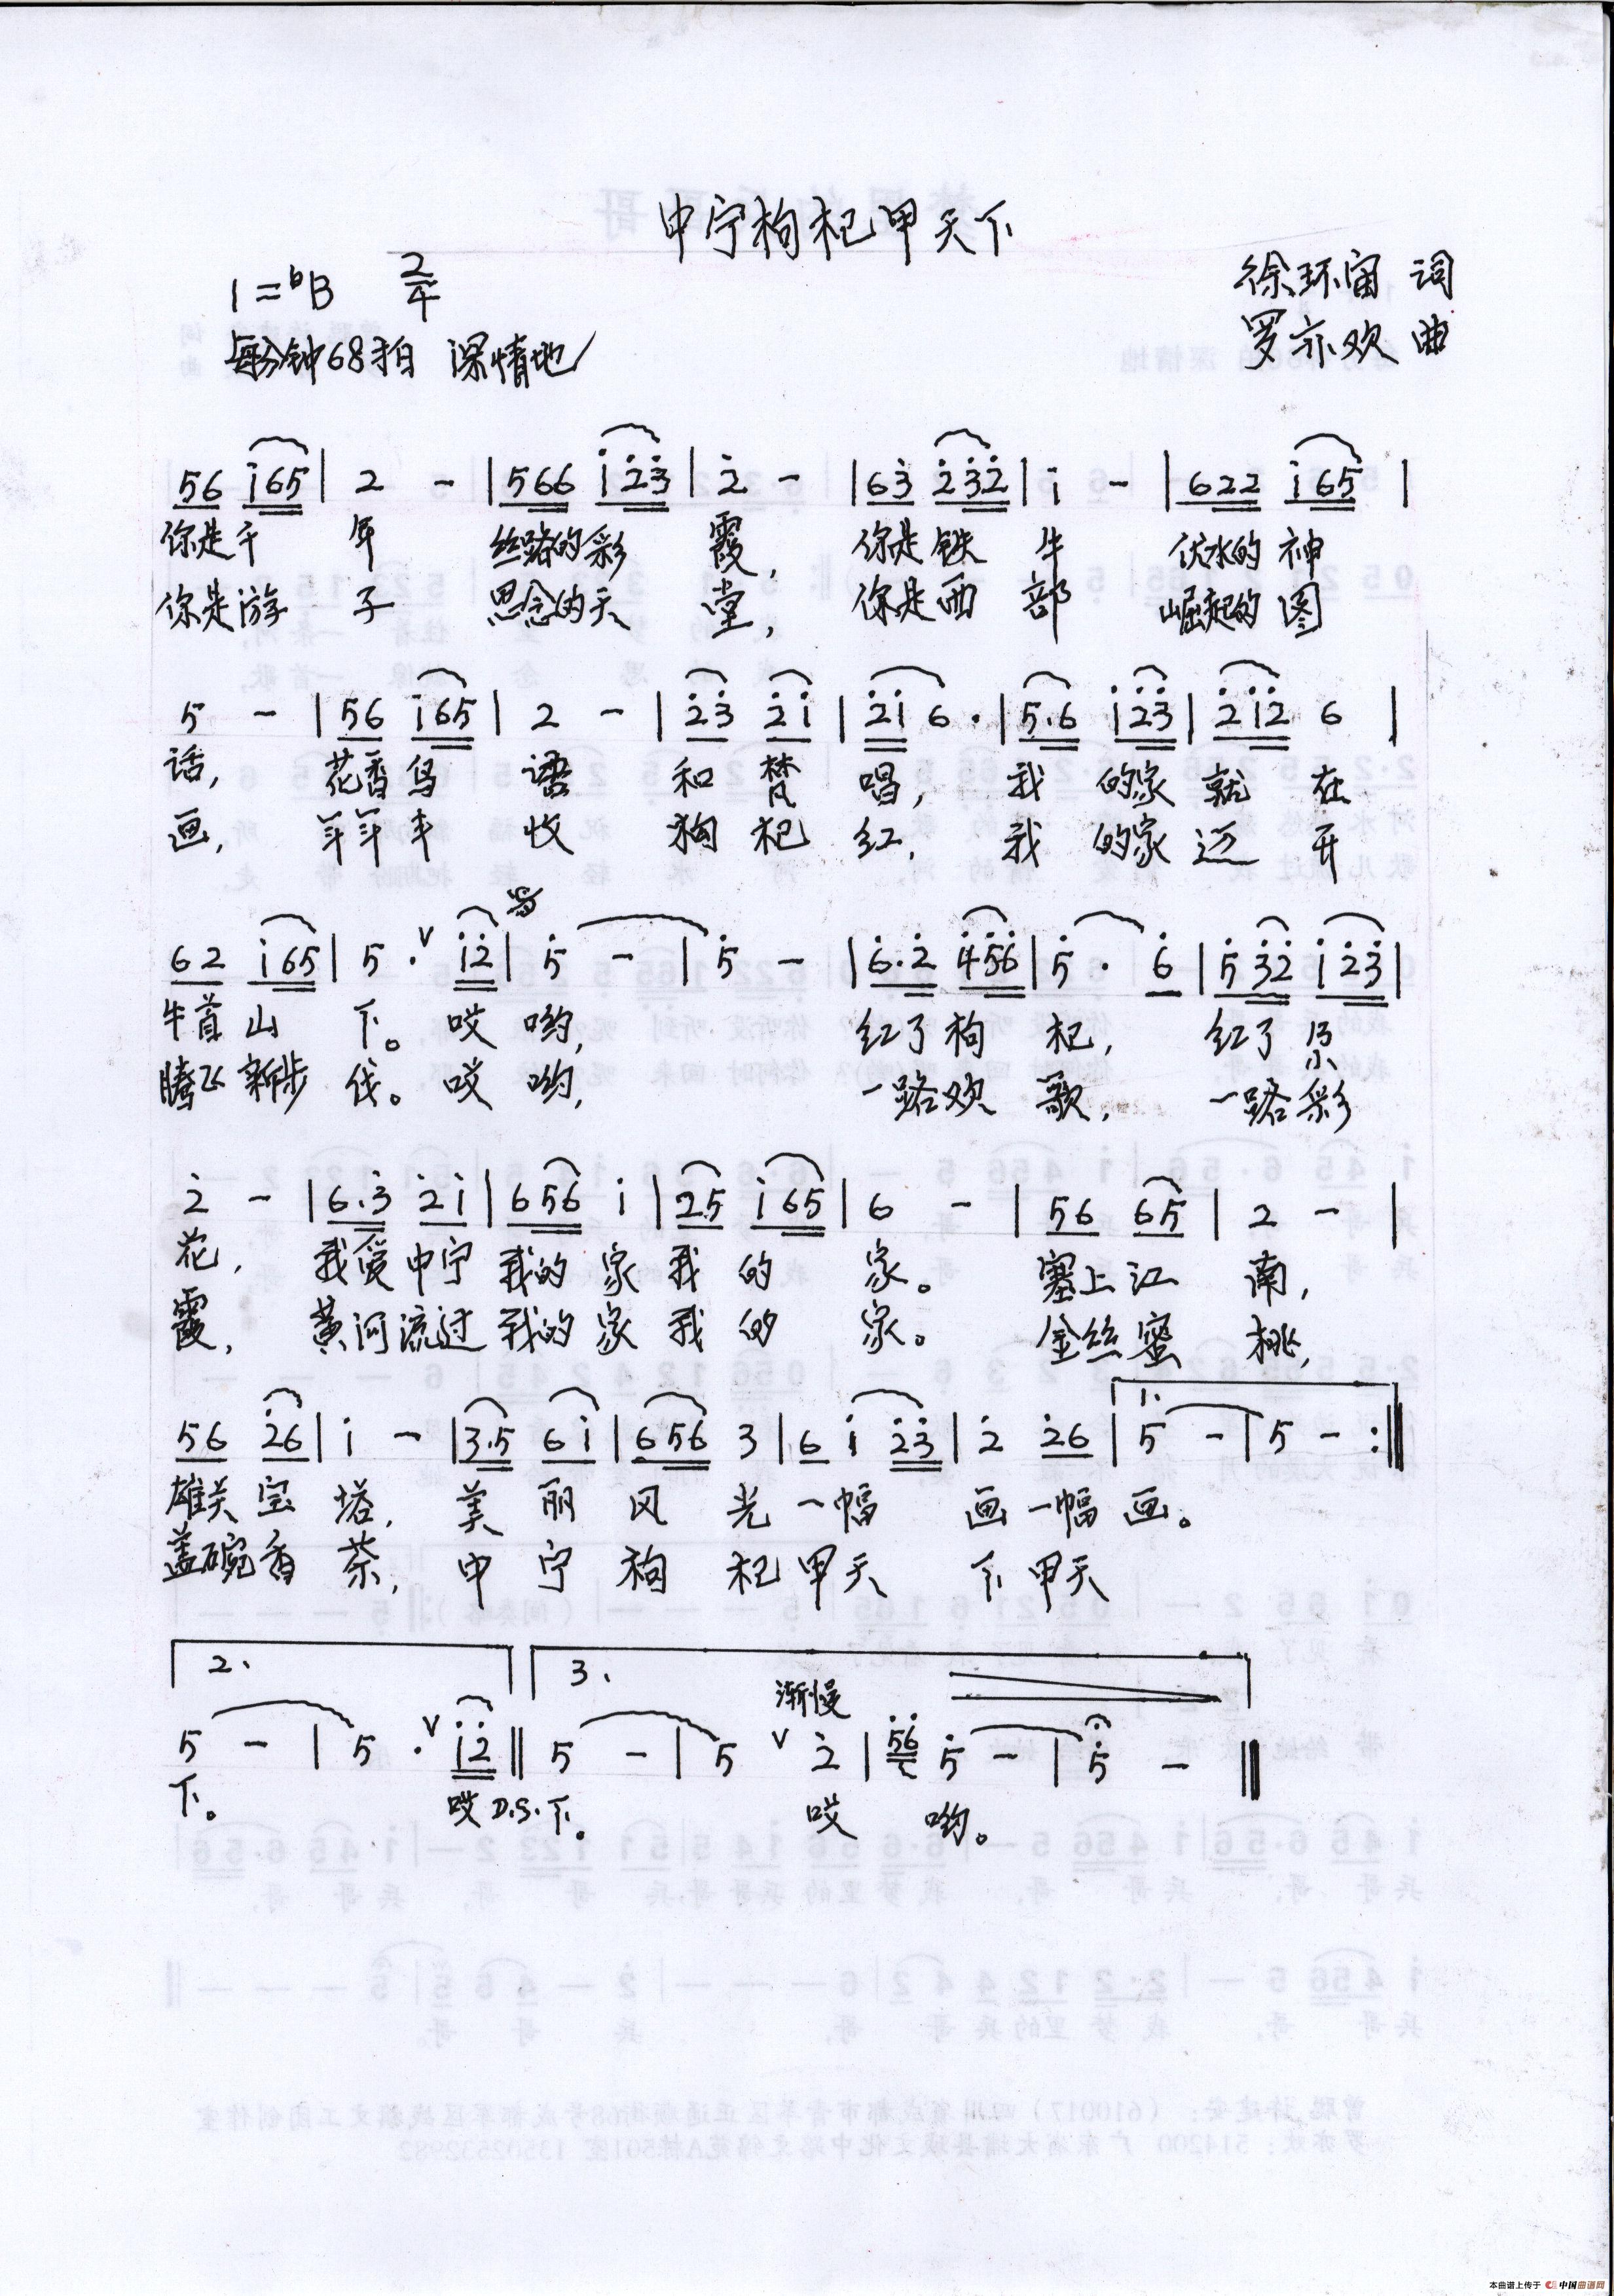 中宁枸杞甲天下
1=♭B 2/4
徐环宙 词
每分钟68拍 深情地
罗亦欢 曲
56 i65 | 2 - | 566 i23 | 2 - | 63 232 | i - | 622 i65 |
你是千 年 丝路的彩 霞, 你是铁 牛 伏水的 神
你是游 子 思念的天 堂, 你是西 部 崛起的 图
5 - | 56 i65 | 2 - | 23 2i | 2i 6· | 5·6 i23 | 2i2 6 |
话, 花香鸟 语 和 梵 唱, 我 的家 就 在
画, 年年丰 收 枸 杞 红, 我 的家 迈 开
62 i65 | 5· V i2 | 5 - | 5 - | 6·2 456 | 5· 6 | 532 i23 |
牛首 山 下。 哎 哟, 红了 枸 杞, 红了
腾飞 新步 伐。 哎 哟, 一路欢 歌, 一路彩
2 - | 6·3 2i | 656 i | 25 i65 | 6 - | 56 65 | 2 - |
花, 我爱中宁 我的 家 我 的 家。 塞上江 南,
霞, 黄河流过 我的 家 我 的 家。 金丝蜜 桃,
1.
56 26 | i - | 3·5 6i | 656 3 | 6 i 23 | 2 26 | 5 - | 5 - :‖
雄关 宝 塔, 美 丽 风 光 一幅 画 一幅 画。
盖碗香 茶, 中 宁 枸 杞 甲天 下 甲天
2. 3.
渐慢
5 - | 5· V i2 ‖ 5 - | 5 V 2 | 56 5 - | 5 - ‖
下。 哎 D.S. 下。 哎 哟。
本曲谱上传于 中国曲谱网